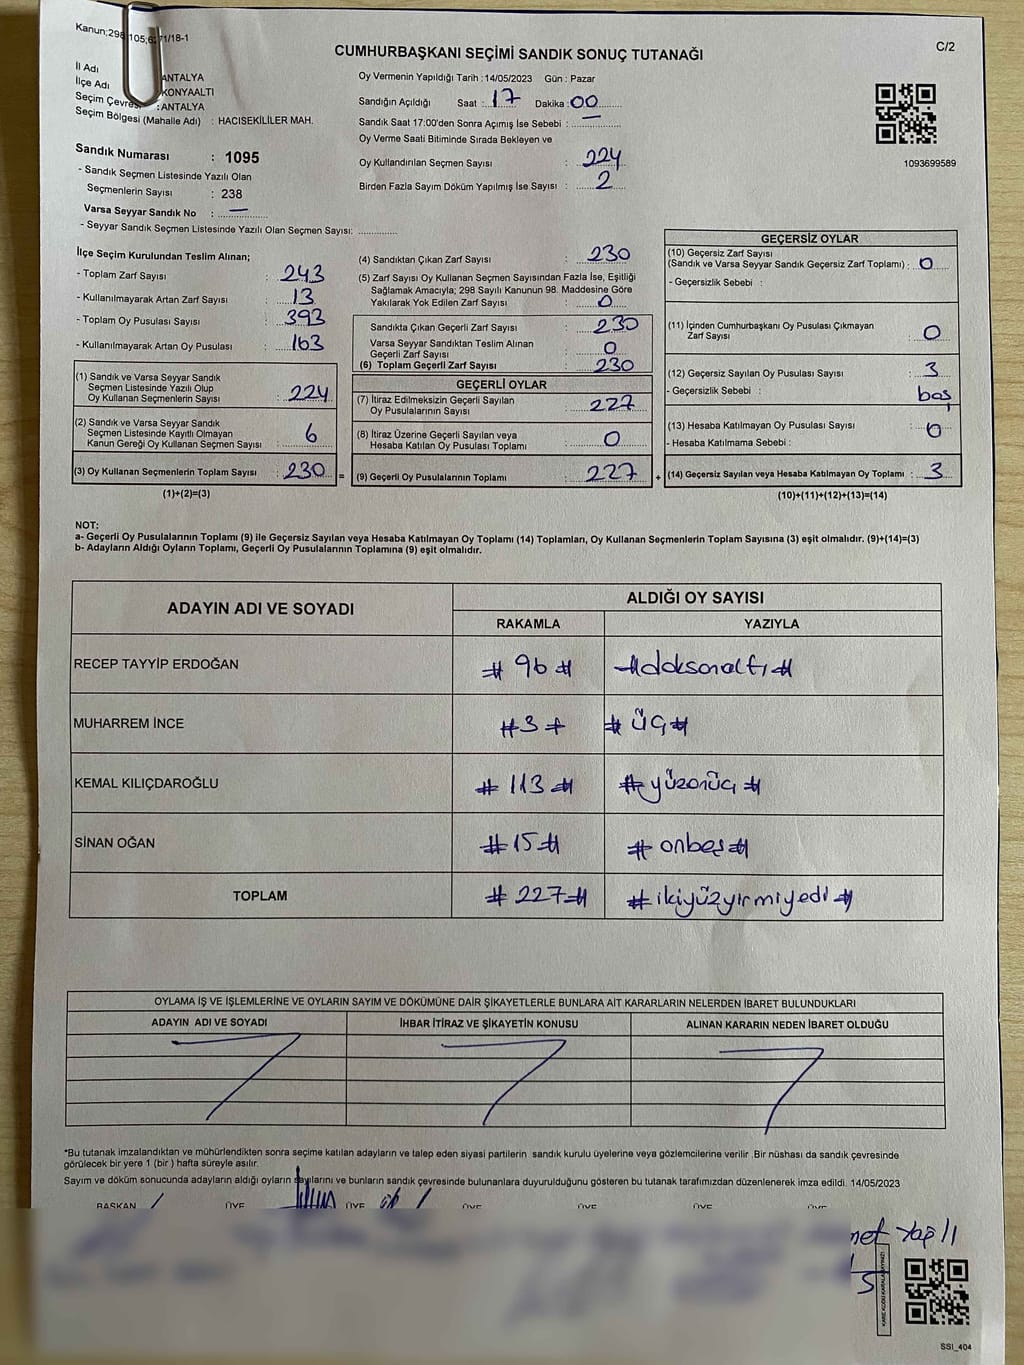 Kanun;298,105;6271/18-1
C/2
CUMHURBAŞKANI SEÇİMİ SANDIK SONUÇ TUTANAĞI
İl Adı ANTALYA
İlçe Adı KONYAALTI
Seçim Çevresi : ANTALYA
Seçim Bölgesi (Mahalle Adı) : HACISEKİLİLER MAH.
Sandık Numarası : 1095
- Sandık Seçmen Listesinde Yazılı Olan
Seçmenlerin Sayısı : 238
Varsa Seyyar Sandık No : —
- Seyyar Sandık Seçmen Listesinde Yazılı Olan Seçmen Sayısı: ..............
Oy Vermenin Yapıldığı Tarih : 14/05/2023 Gün : Pazar
Sandığın Açıldığı Saat : 17 Dakika : 00
Sandık Saat 17:00'den Sonra Açımış İse Sebebi : —
Oy Verme Saati Bitiminde Sırada Bekleyen ve
Oy Kullandırılan Seçmen Sayısı : 224
Birden Fazla Sayım Döküm Yapılmış İse Sayısı : 2
1093699589
İlçe Seçim Kurulundan Teslim Alınan;
- Toplam Zarf Sayısı : 243
- Kullanılmayarak Artan Zarf Sayısı : 13
- Toplam Oy Pusulası Sayısı : 393
- Kullanılmayarak Artan Oy Pusulası : 163
(1) Sandık ve Varsa Seyyar Sandık
Seçmen Listesinde Yazılı Olup
Oy Kullanan Seçmenlerin Sayısı : 224
(2) Sandık ve Varsa Seyyar Sandık
Seçmen Listesinde Kayıtlı Olmayan
Kanun Gereği Oy Kullanan Seçmen Sayısı : 6
(3) Oy Kullanan Seçmenlerin Toplam Sayısı : 230 =
(1)+(2)=(3)
(4) Sandıktan Çıkan Zarf Sayısı : 230
(5) Zarf Sayısı Oy Kullanan Seçmen Sayısından Fazla İse, Eşitliği
Sağlamak Amacıyla; 298 Sayılı Kanunun 98. Maddesine Göre
Yakılarak Yok Edilen Zarf Sayısı : 0
Sandıkta Çıkan Geçerli Zarf Sayısı : 230
Varsa Seyyar Sandıktan Teslim Alınan
Geçerli Zarf Sayısı : 0
(6) Toplam Geçerli Zarf Sayısı : 230
GEÇERLİ OYLAR
(7) İtiraz Edilmeksizin Geçerli Sayılan
Oy Pusulalarının Sayısı : 227
(8) İtiraz Üzerine Geçerli Sayılan veya
Hesaba Katılan Oy Pusulası Toplamı : 0
(9) Geçerli Oy Pusulalarının Toplamı : 227 +
GEÇERSİZ OYLAR
(10) Geçersiz Zarf Sayısı
(Sandık ve Varsa Seyyar Sandık Geçersiz Zarf Toplamı) : 0
- Geçersizlik Sebebi :
(11) İçinden Cumhurbaşkanı Oy Pusulası Çıkmayan
Zarf Sayısı : 0
(12) Geçersiz Sayılan Oy Pusulası Sayısı : 3
- Geçersizlik Sebebi : boş
(13) Hesaba Katılmayan Oy Pusulası Sayısı : 0
- Hesaba Katılmama Sebebi :
(14) Geçersiz Sayılan veya Hesaba Katılmayan Oy Toplamı : 3
(10)+(11)+(12)+(13)=(14)
NOT:
a- Geçerli Oy Pusulalarının Toplamı (9) ile Geçersiz Sayılan veya Hesaba Katılmayan Oy Toplamı (14) Toplamları, Oy Kullanan Seçmenlerin Toplam Sayısına (3) eşit olmalıdır. (9)+(14)=(3)
b- Adayların Aldığı Oyların Toplamı, Geçerli Oy Pusulalarının Toplamına (9) eşit olmalıdır.
ADAYIN ADI VE SOYADI ALDIĞI OY SAYISI
RAKAMLA YAZIYLA
RECEP TAYYİP ERDOĞAN # 96 # # doksanaltı #
MUHARREM İNCE # 3 # # üç #
KEMAL KILIÇDAROĞLU # 113 # # yüzonüç #
SİNAN OĞAN # 15 # # onbeş #
TOPLAM # 227 # # ikiyüzyirmiyedi #
OYLAMA İŞ VE İŞLEMLERİNE VE OYLARIN SAYIM VE DÖKÜMÜNE DAİR ŞİKAYETLERLE BUNLARA AİT KARARLARIN NELERDEN İBARET BULUNDUKLARI
ADAYIN ADI VE SOYADI İHBAR İTİRAZ VE ŞİKAYETİN KONUSU ALINAN KARARIN NEDEN İBARET OLDUĞU
*Bu tutanak imzalandıktan ve mühürlendikten sonra seçime katılan adayların ve talep eden siyasi partilerin sandık kurulu üyelerine veya gözlemcilerine verilir .Bir nüshası da sandık çevresinde
görülecek bir yere 1 (bir ) hafta süreyle asılır.
Sayım ve döküm sonucunda adayların aldığı oyların sayılarını ve bunların sandık çevresinde bulunanlara duyurulduğunu gösteren bu tutanak tarafımızdan düzenlenerek imza edildi. 14/05/2023
BAŞKAN ÜYE ÜYE ÜYE ÜYE ÜYE ÜYE
SSI_404